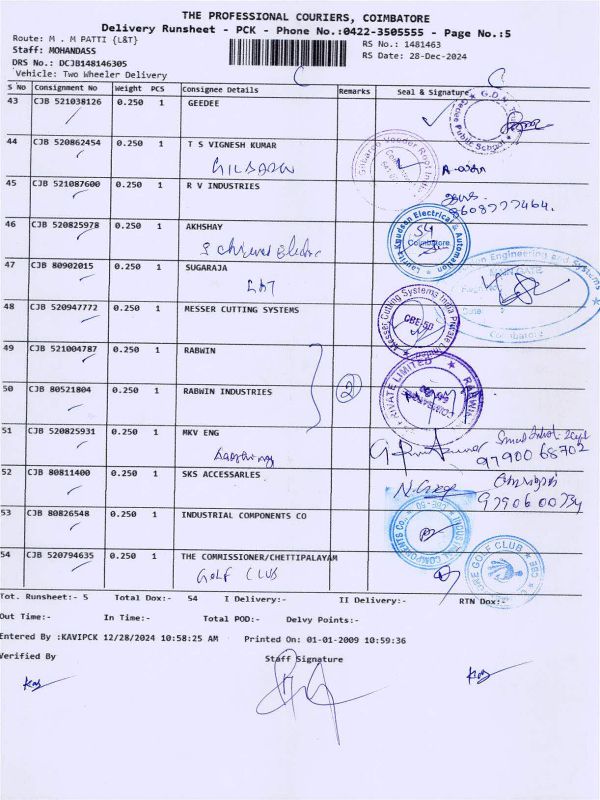 THE PROFESSIONAL COURIERS, COIMBATORE
Delivery Runsheet - PCK - Phone No.:0422-3505555 - Page No.:5
Route: M . M PATTI {L&T}
RS No.: 1481463
Staff: MOHANDASS
RS Date: 28-Dec-2024
DRS No.: DCJB148146305
Vehicle: Two Wheeler Delivery
S No Consignment No Weight PCS Consignee Details Remarks Seal & Signature
43 CJB 521038126 0.250 1 GEEDEE
Geedee Public School
44 CJB 520862454 0.250 1 T S VIGNESH KUMAR
Gilbarco Veeder Root India
45 CJB 521087600 0.250 1 R V INDUSTRIES
8608777464.
46 CJB 520825978 0.250 1 AKHSHAY
Electrical & Automation
Coimbatore
47 CJB 80902015 0.250 1 SUGARAJA
L&T
Engineering and Systems
Date :
Coimbatore
48 CJB 520947772 0.250 1 MESSER CUTTING SYSTEMS
Messer Cutting Systems India Private Limited
CBE-50
49 CJB 521004787 0.250 1 RABWIN
50 CJB 80521804 0.250 1 RABWIN INDUSTRIES 2
RABWIN PRIVATE LIMITED
51 CJB 520825931 0.250 1 MKV ENG
97900 68702
52 CJB 80811400 0.250 1 SKS ACCESSARLES
97906 00734
53 CJB 80826548 0.250 1 INDUSTRIAL COMPONENTS CO
INDUSTRIAL COMPONENTS Co.
CBE-50
54 CJB 520794635 0.250 1 THE COMMISSIONER/CHETTIPALAYAM
GOLF CLUB
GOLF CLUB
Tot. Runsheet:- 5 Total Dox:- 54 I Delivery:- II Delivery:- RTN Dox:-
Out Time:- In Time:- Total POD:- Delvy Points:-
Entered By :KAVIPCK 12/28/2024 10:58:25 AM Printed On: 01-01-2009 10:59:36
Verified By Staff Signature